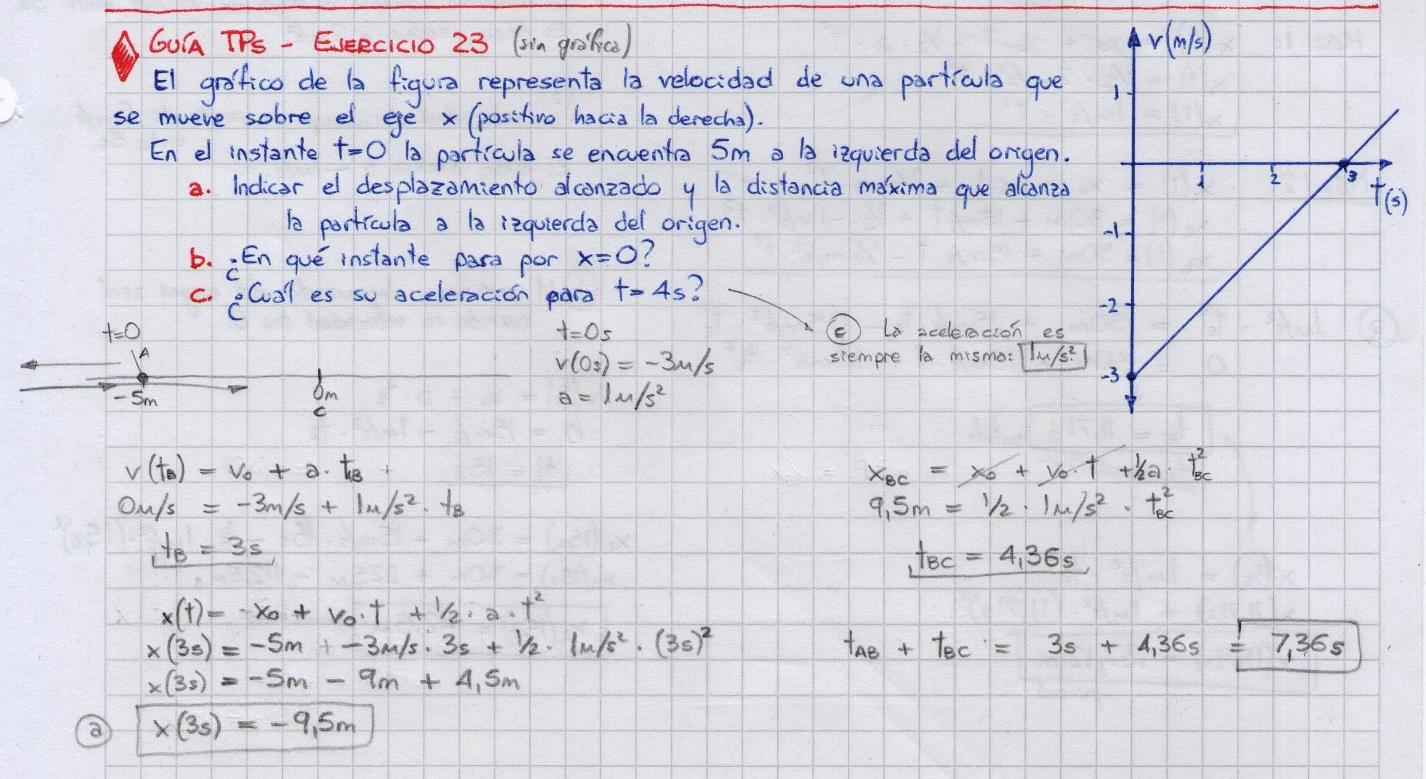 GUÍA TPs - EJERCICIO 23 (sin gráfica)
El gráfico de la figura representa la velocidad de una partícula que
se mueve sobre el eje x (positivo hacia la derecha).
En el instante t=0 la partícula se encuentra 5m a la izquierda del origen.
a. Indicar el desplazamiento alcanzado y la distancia máxima que alcanza
la partícula a la izquierda del origen.
b. ¿En qué instante para por x=0?
c. ¿Cuál es su aceleración para t=4s?
v(m/s)
1
1 2 3
t(s)
-1
-2
-3
c La aceleración es
siempre la misma: 1m/s².
t=0
A
-5m
0m
C
t=0s
v(0s) = -3m/s
a = 1m/s²
v(tB) = v0 + a. tB
0m/s = -3m/s + 1m/s² . tB
tB = 3s
x(t) = -x0 + v0.t + 1/2. a. t²
x(3s) = -5m + -3m/s. 3s + 1/2. 1m/s². (3s)²
x(3s) = -5m - 9m + 4,5m
a x(3s) = -9,5m
xBC = x0 + v0.t + 1/2a. tBC²
9,5m = 1/2 . 1m/s² . tBC²
tBC = 4,36s
tAB + tBC = 3s + 4,36s = 7,36s